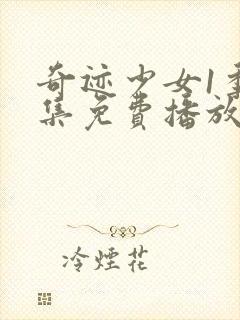 奇迹少女1季
集免費播放
冷煙花